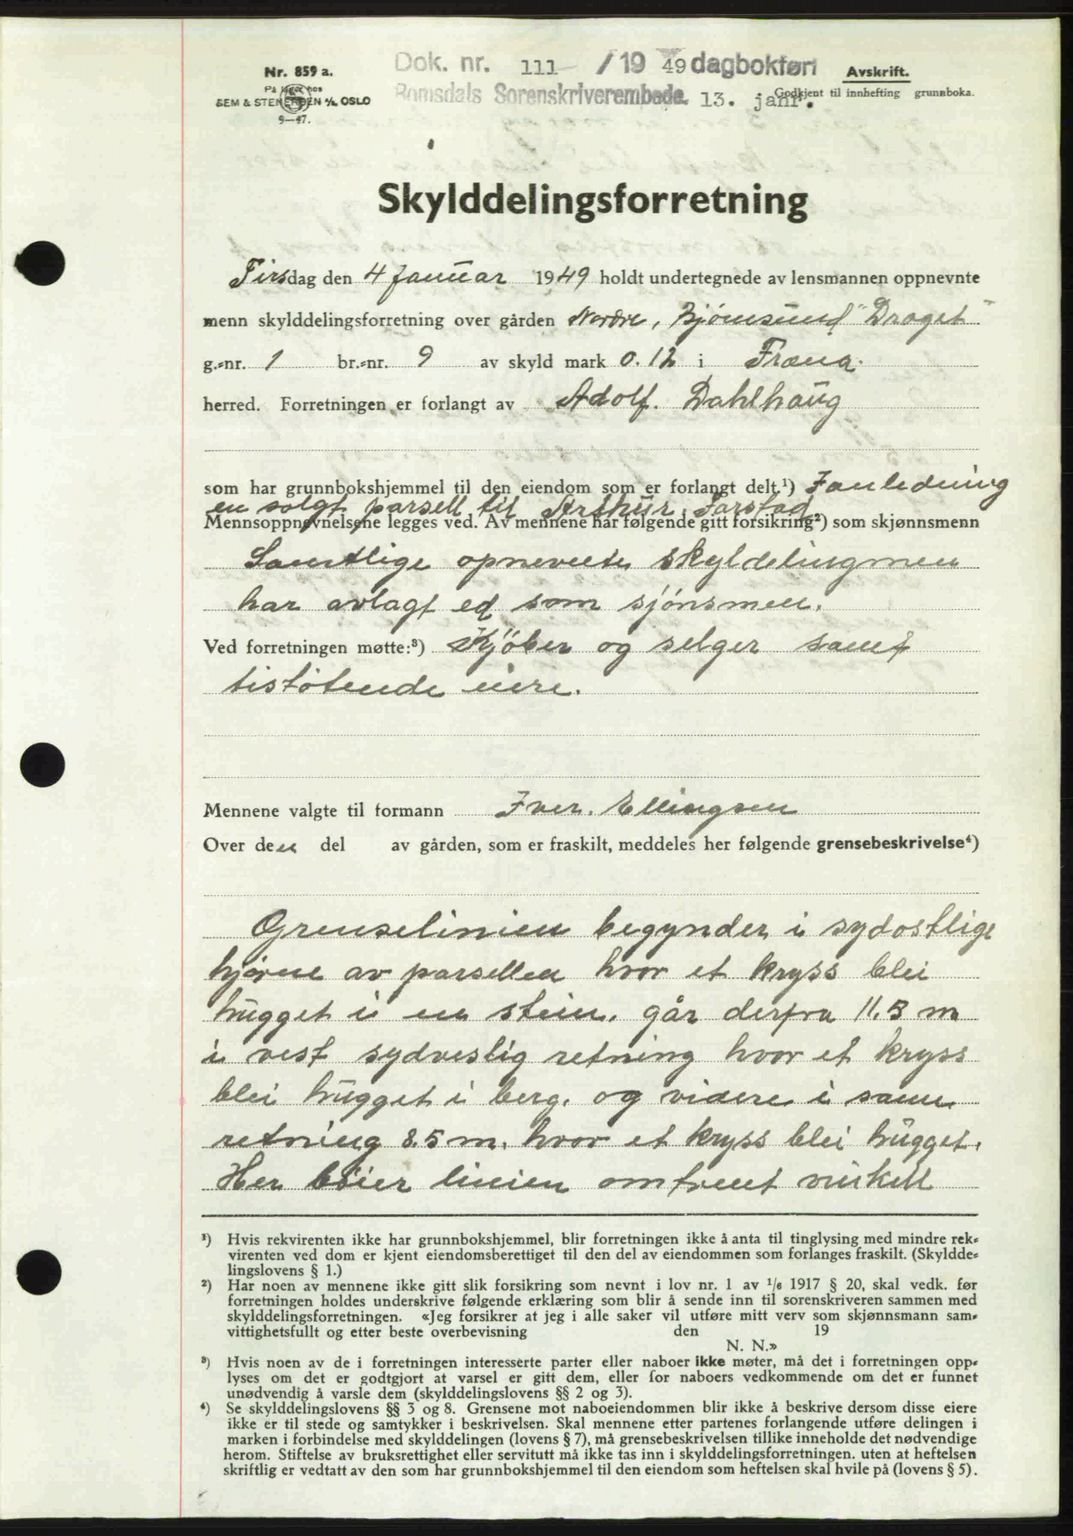 Nr. 859 a.
På lager hos
SEM & STENERSEN A/S, OSLO
9—47.
Dok. nr. 111 / 19 49 dagbokført
Romsdals Sorenskriverembede. 13. janr.
Avskrift.
Godkjent til innhefting grunnboka.
Skylddelingsforretning
Tirsdag den 4 Januar 1949 holdt undertegnede av lensmannen oppnevnte
menn skylddelingsforretning over gården Nordre, Bjørnsund "Draget"
g.-nr. 1 br.-nr. 9 av skyld mark 0.12 i Fræna.
herred. Forretningen er forlangt av Adolf. Dahlhaug
som har grunnbokshjemmel til den eiendom som er forlangt delt.¹) Janledning
en solgt parsell til Arthur Jarstad
Mennsoppnevnelsene legges ved. Av mennene har følgende gitt forsikring²) som skjønnsmenn
Samtlige opnevete skyldelingmen
har avlagt ed som sjönsmen.
Ved forretningen møtte:³) Kjöber og selger samt
tistötende eiere.
Mennene valgte til formann Iver. Ellingsen
Over den del av gården, som er fraskilt, meddeles her følgende grensebeskrivelse⁴)
Grenselinien begynder i sydostlige
hjørne av parsellen hvor et kryss blei
hugget i en stein. går derfra 11.5 m
i vest sydveslig retning hvor et kryss
blei hugget i berg. og videre i samme
retning 8.5 m. hvor et kryss blei hugget.
Her böier linien omtrent vinkell
¹) Hvis rekvirenten ikke har grunnbokshjemmel, blir forretningen ikke å anta til tinglysing med mindre rek-
virenten ved dom er kjent eiendomsberettiget til den del av eiendommen som forlanges fraskilt. (Skyldde-
lingslovens § 1.)
²) Har noen av mennene ikke gitt slik forsikring som nevnt i lov nr. 1 av ¹/₆ 1917 § 20, skal vedk. før
forretningen holdes underskrive følgende erklæring som blir å sende inn til sorenskriveren sammen med
skylddelingsforretningen. «Jeg forsikrer at jeg i alle saker vil utføre mitt verv som skjønnsmann sam-
vittighetsfullt og etter beste overbevisning den 19
N. N.»
³) Hvis noen av de i forretningen interesserte parter eller naboer ikke møter, må det i forretningen opp-
lyses om det er godtgjort at varsel er gitt dem, eller for naboers vedkommende om det er funnet
unødvendig å varsle dem (skylddelingslovens §§ 2 og 3).
⁴) Se skylddelingslovens §§ 3 og 8. Grensene mot naboeiendommen blir ikke å beskrive dersom disse eiere
ikke er til stede og samtykker i beskrivelsen. Skal mennene etter partenes forlangende utføre delingen i
marken i forbindelse med skylddelingen (lovens § 7), må grensebeskrivelsen tillike inneholde det nødvendige
herom. Stiftelse av bruksrettighet eller servitutt må ikke tas inn i skylddelingsforretningen, uten at heftelsen
skriftlig er vedtatt av den som har grunnbokshjemmel til den eiendom som heftelsen skal hvile på (lovens § 5).